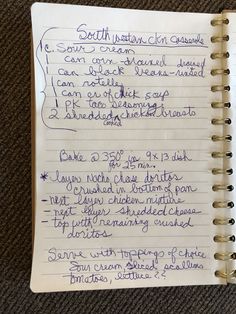 Southwestern ckn Casserole
1 c. Sour cream
1 can corn - drained
1 can black beans - rinsed
1 can rotelle
1 can cr of chick soup
1 PK taco seasoning
2 shredded chicken breasts
cooked
Bake @ 350° in 9x13 dish
for 25 min.
* layer Nacho chese doritos
crushed in bottom of pan
- next layer chicken mixture
- next layer - shredded cheese
- top with remaining crushed
doritos
Serve with toppings of choice
Sour cream, sliced scallions
tomatoes, lettuce??